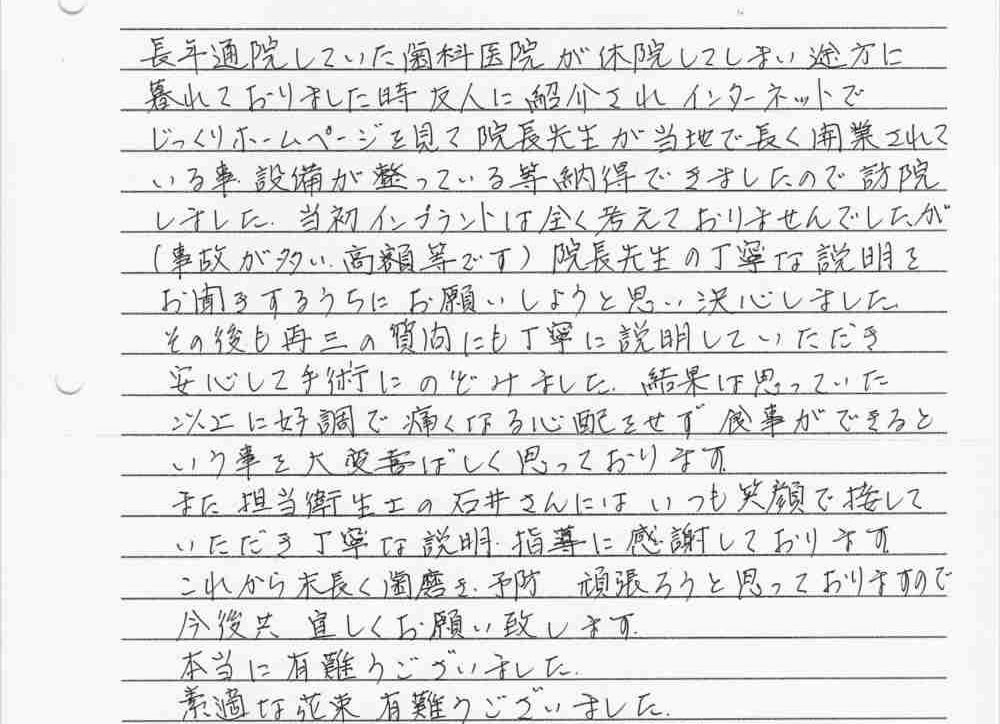 長年通院していた歯科医院が休院してしまい途方に
暮れておりました時友人に紹介されインターネットで
じっくりホームページを見て院長先生が当地で長く開業されて
いる事、設備が整っている等納得できましたので訪院
しました。当初インプラントは全く考えておりませんでしたが
(事故が多い、高額等です)院長先生の丁寧な説明を
お聞きするうちにお願いしようと思い決心しました。
その後も再三の質問にも丁寧に説明していただき
安心して手術にのぞみました。結果は思っていた
以上に好調で痛くなる心配をせず食事ができると
いう事を大変喜ばしく思っております。
また担当衛生士の石井さんにはいつも笑顔で接して
いただき丁寧な説明、指導に感謝しております。
これから末長く歯磨き、予防 頑張ろうと思っておりますので
今後共 宜しくお願い致します。
本当に有難うございました。
素適な花束有難うございました。